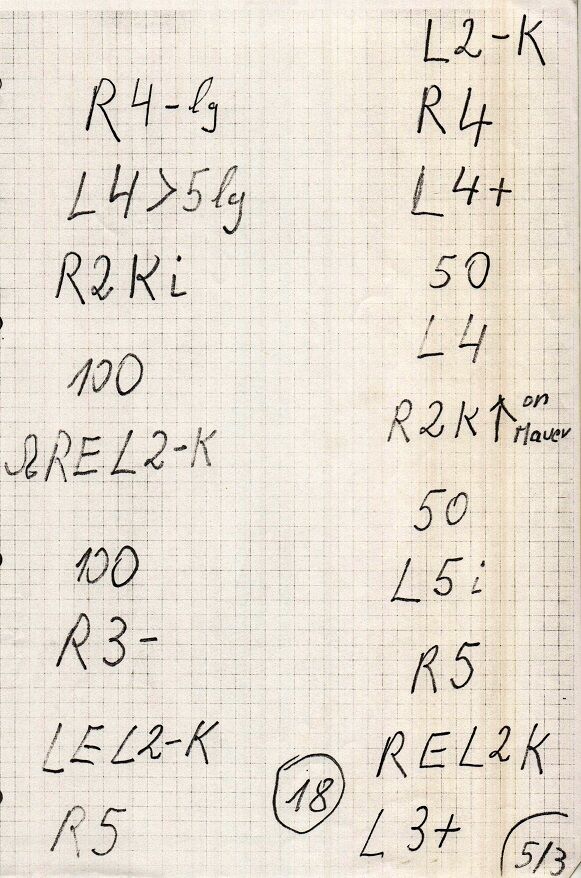 R4-lg
L4>5lg
R2Ki
100
REL2-K
100
R3-
LEL2-K
R5
18
L2-K
R4
L4+
50
L4
R2K↑ an Mauer
50
L5i
R5
REL2K
L3+
5/3